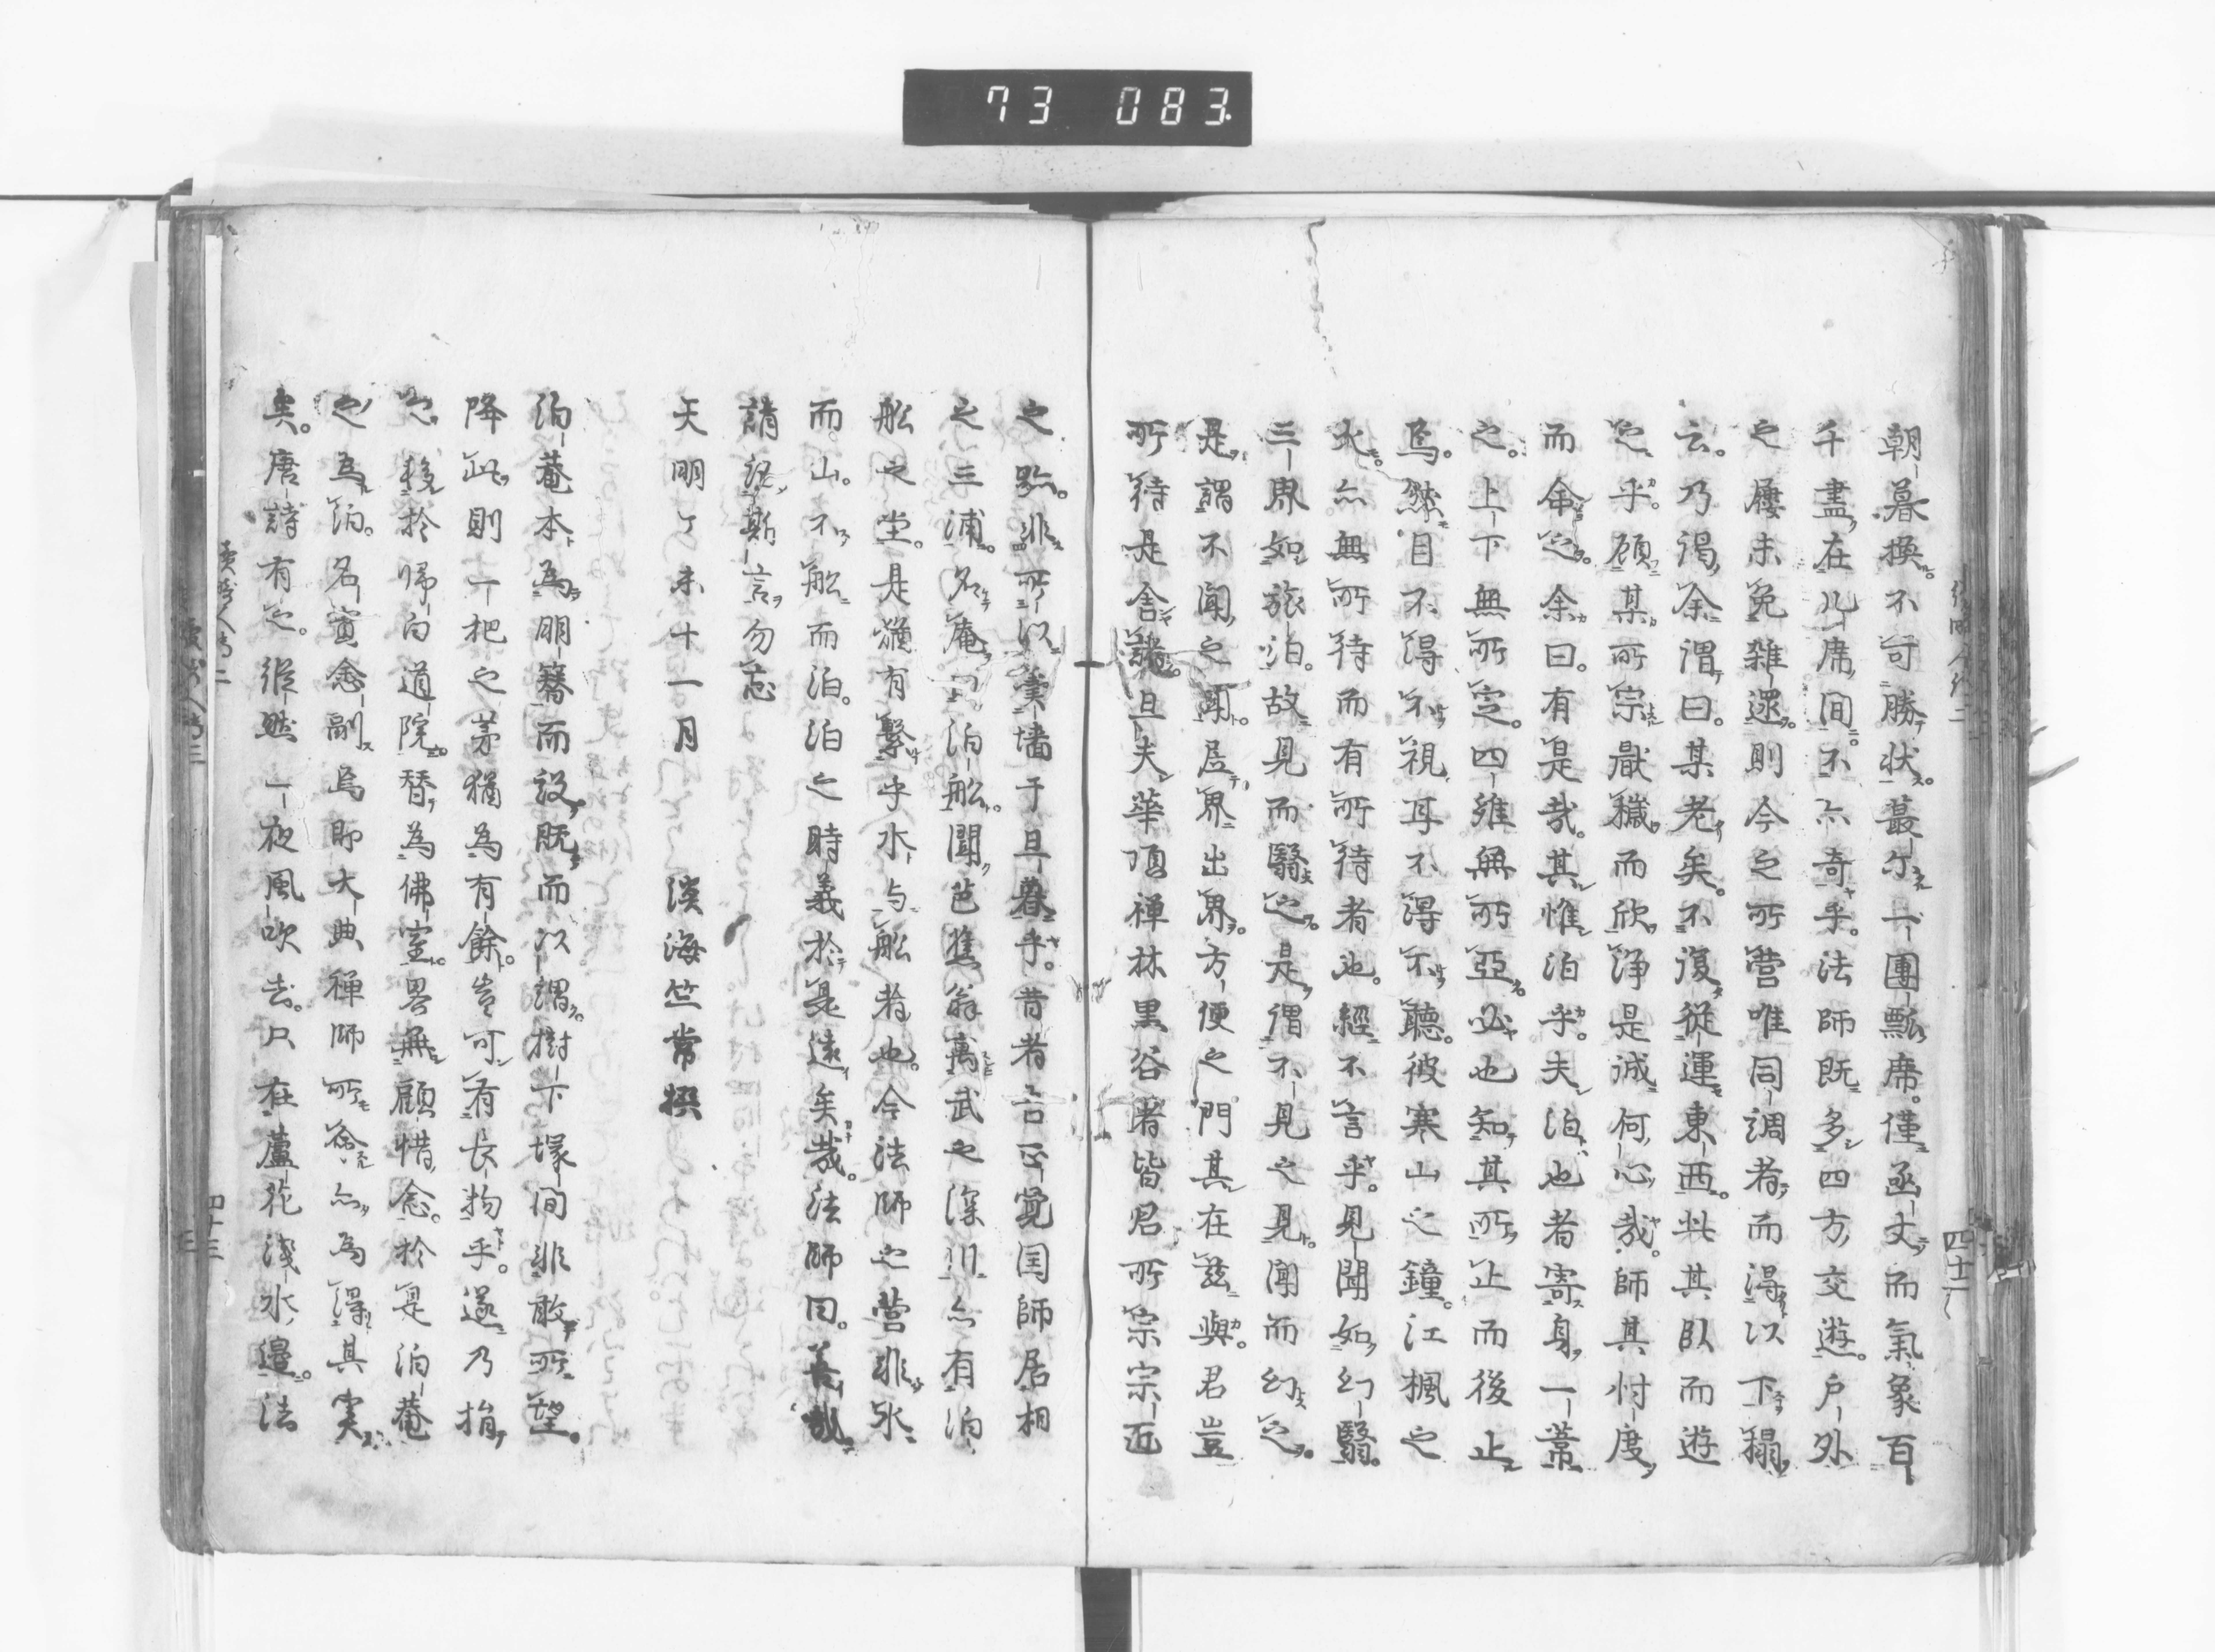 73 083
朝暮換不可勝状。蕞尓一團瓢席。僅函丈而氣象百
千盡在几席間。不亦奇乎。法師既多四方交遊。戸外
之屨未免雑還則今之所営唯同調者而得以下榻
云。乃謁余謂曰。某老矣。不復従運東西。其臥而遊
之乎。顧某所宗厭穢而欣浄是誠何心哉。師其忖度
而命之。余曰。有是哉。其惟泊乎。夫泊也者寄身一葦
之。上下無所定。四維無所亞。必也知其所止而後止
焉。然目不得不視耳不得不聴。彼寒山之鐘。江楓之
火。亦無所待而有所待者也。經不言乎。見聞如幻翳。
三界如旅泊。故見而翳之。是謂不見之見。聞而幻之。
是謂不聞之聞。居界出界。方便之門其在茲與。君豈
所待是舎諸。且夫華頂禅林黒谷者皆君所宗宗匠
之跡。非所以羹墻于旦暮乎。昔者吾正覚国師居相
之三浦。名庵曰泊船。聞芭蕉翁寓武之深川亦有泊
船之堂。是猶有繋乎水与船者也。今法師之営非水
而。山。不船而泊。泊之時義於是遠矣哉。法師曰。善哉
請誌斯言勿忘
天明丁未十一月　淡海竺常撰
泊菴本為朋簪而設。既而以謂樹下塚間非敢所望。
降此則一把之茅猶為有餘豈可有長物乎。遂乃捐
之。移於帰白道院。替為佛室。畧無顧惜念。於是泊菴
之為泊。名實愈副焉即大典禅師所答亦為得其実
矣。唐詩有之。縦然一夜風吹去。只在蘆花浅水邉。法
四十二
四十三